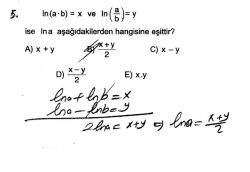 5. ln(a·b) = x ve ln(a/b) = y
ise lna aşağıdakilerden hangisine eşittir?
A) x + y B) x+y/2 C) x − y
D) x−y/2 E) x.y
lna + lnb = x
lna − lnb = y
2lna = x+y ⇒ lna = x+y/2